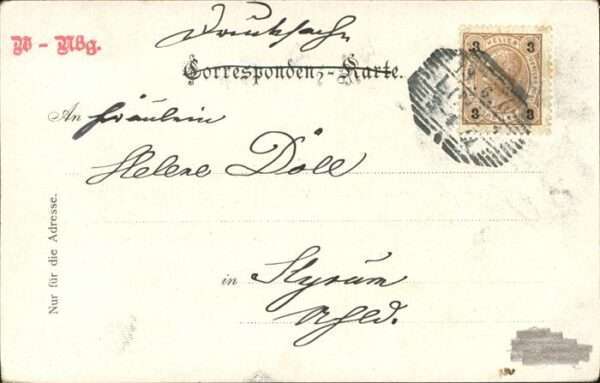 Drucksache
W - Nbg.
Correspondenz-Karte.
3 HELLER 3
3 3
An Fräulein
Helene Döll
in Styrum
Rhld.
Nur für die Adresse.